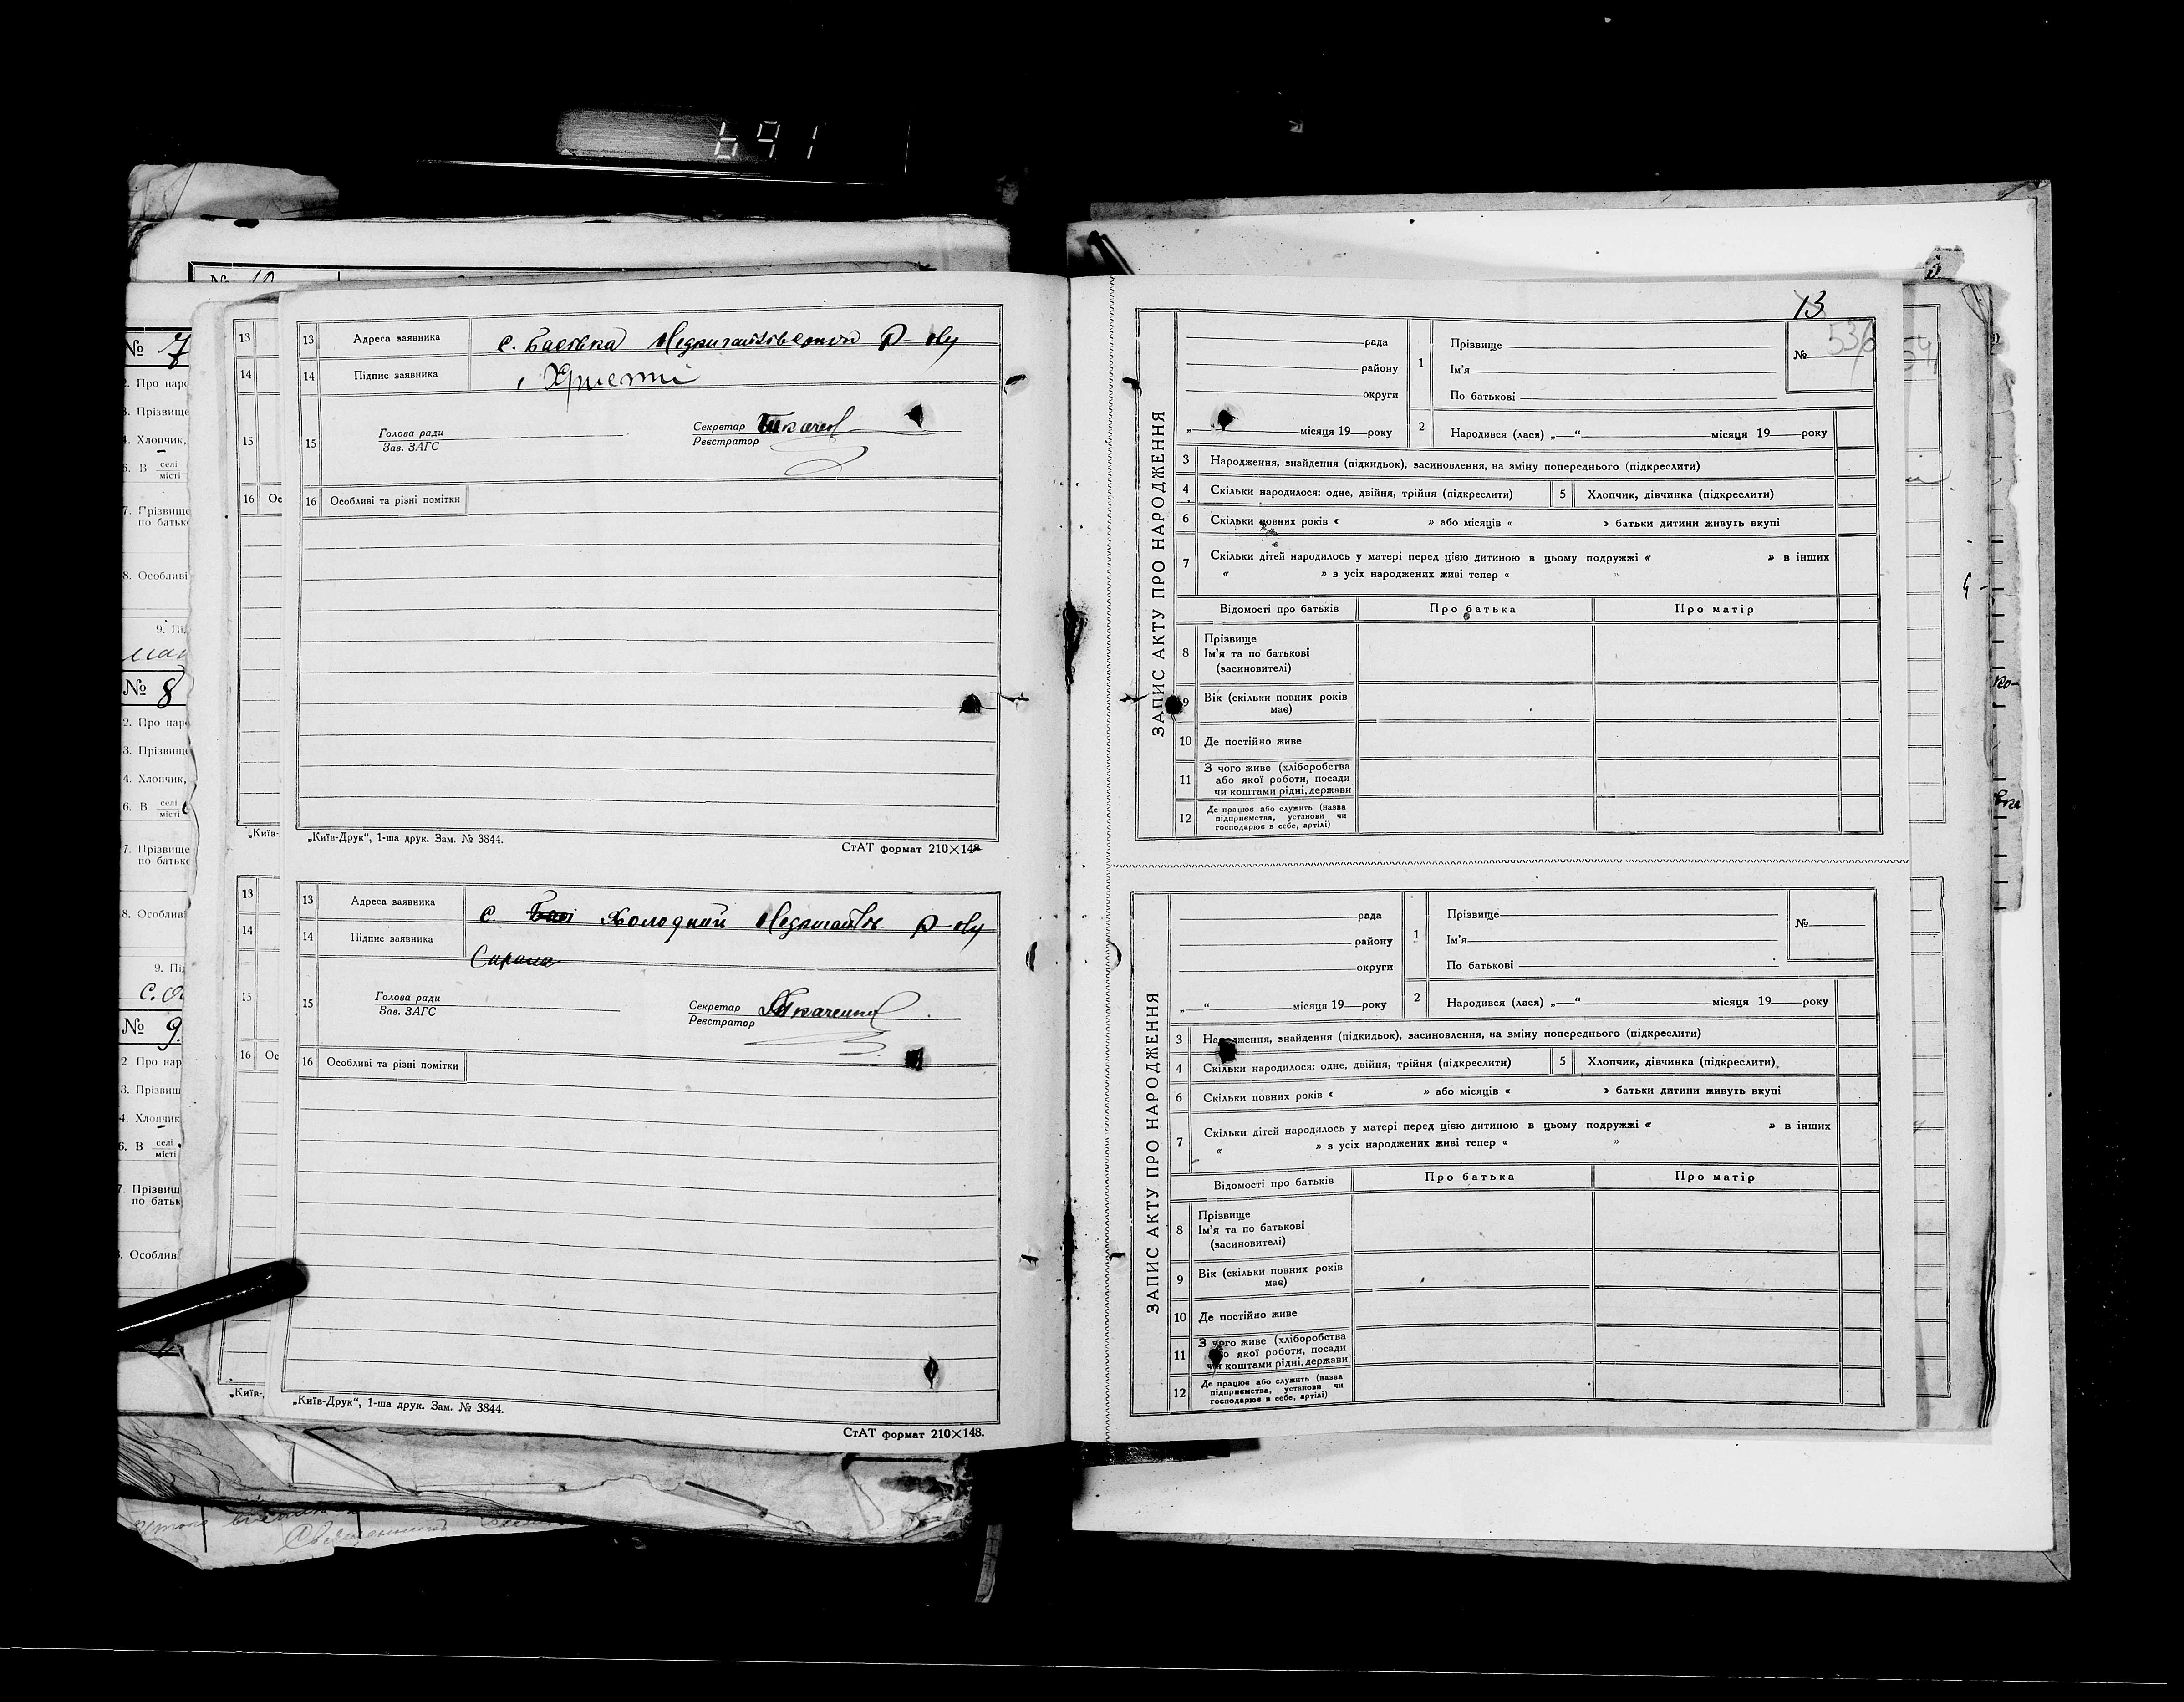 691
№ 10
№ 7
2. Про нар
3. Прізвище
4. Хлопчик,
6. В селі місті
7. Прізвище
по батько
8. Особливі
9. Пі
№ 8
2. Про нар
3. Прізвище
4. Хлопчик,
6. В селі місті
7. Прізвище
по батько
8. Особливі
9. Пі
№ 9
2 Про нар
3. Прізвищ
4. Хлопчик
6. В селі місті
7. Прізвищ
по батьк
Особлив
13
14
15
16 Ос
„Київ-
13
14
15
16 Ос
„Київ-
13 Адреса заявника с. Басівка
14 Підпис заявника
15 Голова ради Секретар
Зав. ЗАГС Реєстратор
16 Особливі та різні помітки
„Київ-Друк“, 1-ша друк. Зам. № 3844.
СтАТ формат 210×148
13 Адреса заявника с. Холодний
14 Підпис заявника
15 Голова ради Секретар Ткаченко
Зав. ЗАГС Реєстратор
16 Особливі та різні помітки
„Київ-Друк“, 1-ша друк. Зам. № 3844.
СтАТ формат 210×148.
13
536
54
ЗАПИС АКТУ ПРО НАРОДЖЕННЯ
рада
району
округи
„ місяця 19 року
1 Прізвище №
Ім'я
По батькові
2 Народився (лася) „ “ місяця 19 року
3 Народження, знайдення (підкидьок), засиновлення, на зміну попереднього (підкреслити)
4 Скільки народилося: одне, двійня, трійня (підкреслити) 5 Хлопчик, дівчинка (підкреслити)
6 Скільки повних років « » або місяців « » батьки дитини живуть вкупі
7 Скільки дітей народилось у матері перед цією дитиною в цьому подружжі « » в інших
« » з усіх народжених живі тепер « »
Відомості про батьків Про батька Про матір
8 Прізвище
Ім'я та по батькові
(засиновителі)
9 Вік (скільки повних років
має)
10 Де постійно живе
11 З чого живе (хліборобства
або якої роботи, посади
чи коштами рідні, держави
12 Де працює або служить (назва
підприємства, установи чи
господарює в себе, артілі)
ЗАПИС АКТУ ПРО НАРОДЖЕННЯ
рада
району
округи
„ “ місяця 19 року
1 Прізвище №
Ім'я
По батькові
2 Народився (лася) „ “ місяця 19 року
3 Народження, знайдення (підкидьок), засиновлення, на зміну попереднього (підкреслити)
4 Скільки народилося: одне, двійня, трійня (підкреслити) 5 Хлопчик, дівчинка (підкреслити)
6 Скільки повних років « » або місяців « » батьки дитини живуть вкупі
7 Скільки дітей народилось у матері перед цією дитиною в цьому подружжі « » в інших
« » з усіх народжених живі тепер « »
Відомості про батьків Про батька Про матір
8 Прізвище
Ім'я та по батькові
(засиновителі)
9 Вік (скільки повних років
має)
10 Де постійно живе
11 З чого живе (хліборобства
або якої роботи, посади
чи коштами рідні, держави
12 Де працює або служить (назва
підприємства, установи чи
господарює в себе, артілі)